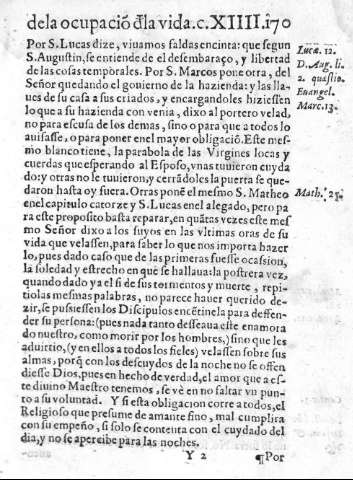 de la ocupació đla vida.c.XIIII.170
Por S. Lucas dize, viuamos faldas encinta: que segun
S. Augustin, se entiende de el desembaraço, y libertad
de las cosas temporales. Por S. Marcos pone otra, del
Señor quedando el gouierno de la hazienda: y las lla-
ues de su casa a sus criados, y encargandoles hiziessen
lo que a su hazienda con venia, dixo al portero velad,
no para escusa de los demas, sino o para que a todos lo
auisasse, o para poner en el mayor obligació. Este mes-
mo blanco tiene, la parabola de las Virgines locas y
cuerdas que esperando al Esposo, vnas tuuieron cuyda
do: y otras no le tuuieron, y cerrádoles la puerta se que-
daron hasta oy fuera. Otras pone el mesmo S. Matheo
en el capitulo catorze y S. Lucas en el alegado, pero pa
ra este proposito basta reparar, en quátas vezes este mes
mo Señor dixo a los suyos en las vltimas oras de su
vida que velassen, para saber lo que nos importa hazer
lo, pues dado caso que de las primeras fuesse ocassion,
la soledad y estrecho en que se hallaua: la postrera vez,
quando dado ya el fi de sus tormentos y muerte, repi-
tio las mesmas palabras, no parece hauer querido de-
zir, se pusiessen los Discipulos en cetinela para deffen-
der su persona: (pues nada tanto desseaua este enamora
do nuestro, como morir por los hombres,) sino que les
aduirtio, (y en ellos a todos los fieles) velassen sobre sus
almas, porq̃ con los descuydos de la noche no se offen
diesse Dios, pues en hecho de verdad, el amor que a es-
te diuino Maestro tenemos, se vè en no faltar vn pun-
to a su voluntad. Y si esta obligacion corre a todos, el
Religioso que presume de amante fino, mal cumplira
con su empeño, si solo se contenta con el cuydado del
dia, y no se apercibe para las noches.
Y 2 ¶Por
Lucæ. 12.
D. Aug. li.
2. quæstio.
Euangel.
Marc. 13.
Math. 25.